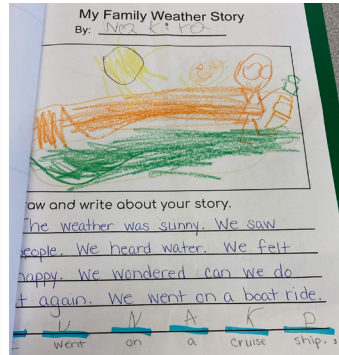 My Family Weather Story
By:
aw and write about your story.
he weather was sunny. We saw
eople. We heard water. We felt
happy. We wondered can we do
t again. We went on a boat ride.
U N A K D
went on a cruise ship. 3